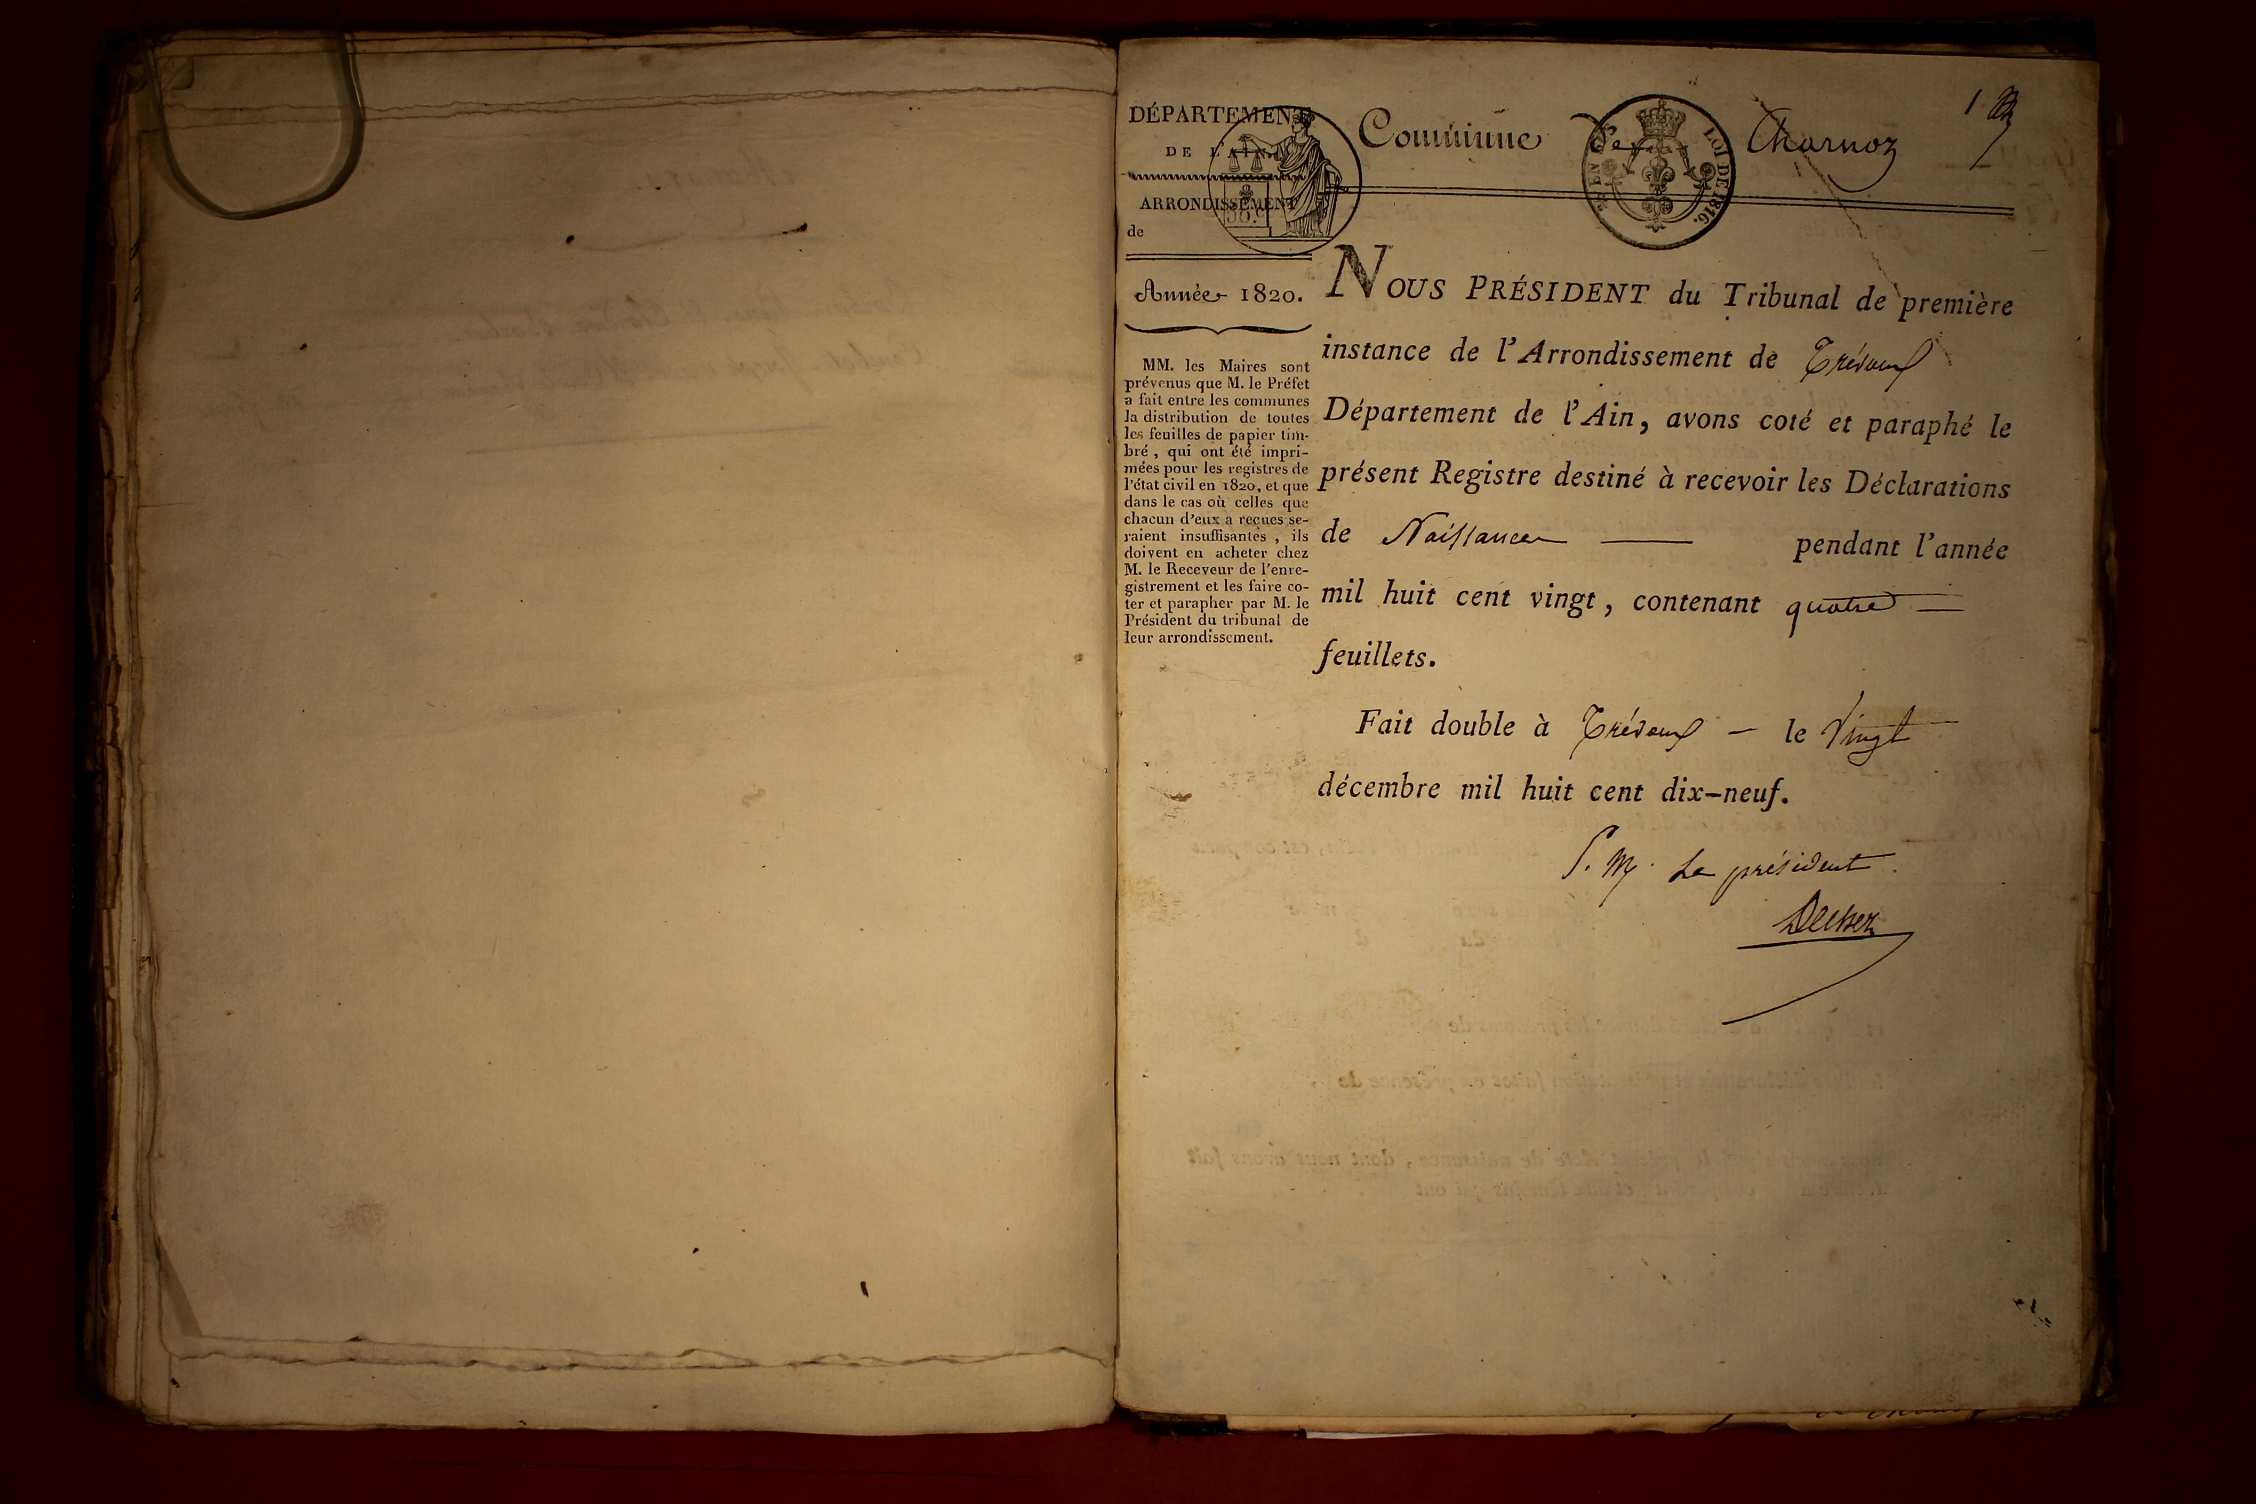 DÉPARTEMENT
DE L'AIN.
ARRONDISSEMENT
de
Année 1820.
MM. les Maires sont
prévenus que M. le Préfet
a fait entre les communes
la distribution de toutes
les feuilles de papier tim-
bré, qui ont été impri-
mées pour les registres de
l'état civil en 1820, et que
dans le cas où celles que
chacun d'eux a reçues se-
raient insuffisantes, ils
doivent en acheter chez
M. le Receveur de l'enre-
gistrement et les faire co-
ter et parapher par M. le
Président du tribunal de
leur arrondissement.
1
Commune de Charnoz
LOI DE 1816.
NOUS PRÉSIDENT du Tribunal de première
instance de l'Arrondissement de Trévoux
Département de l'Ain, avons coté et paraphé le
présent Registre destiné à recevoir les Déclarations
de Naissances pendant l'année
mil huit cent vingt, contenant quatre
feuillets.
Fait double à Trévoux le Vingt
décembre mil huit cent dix-neuf.
Le président